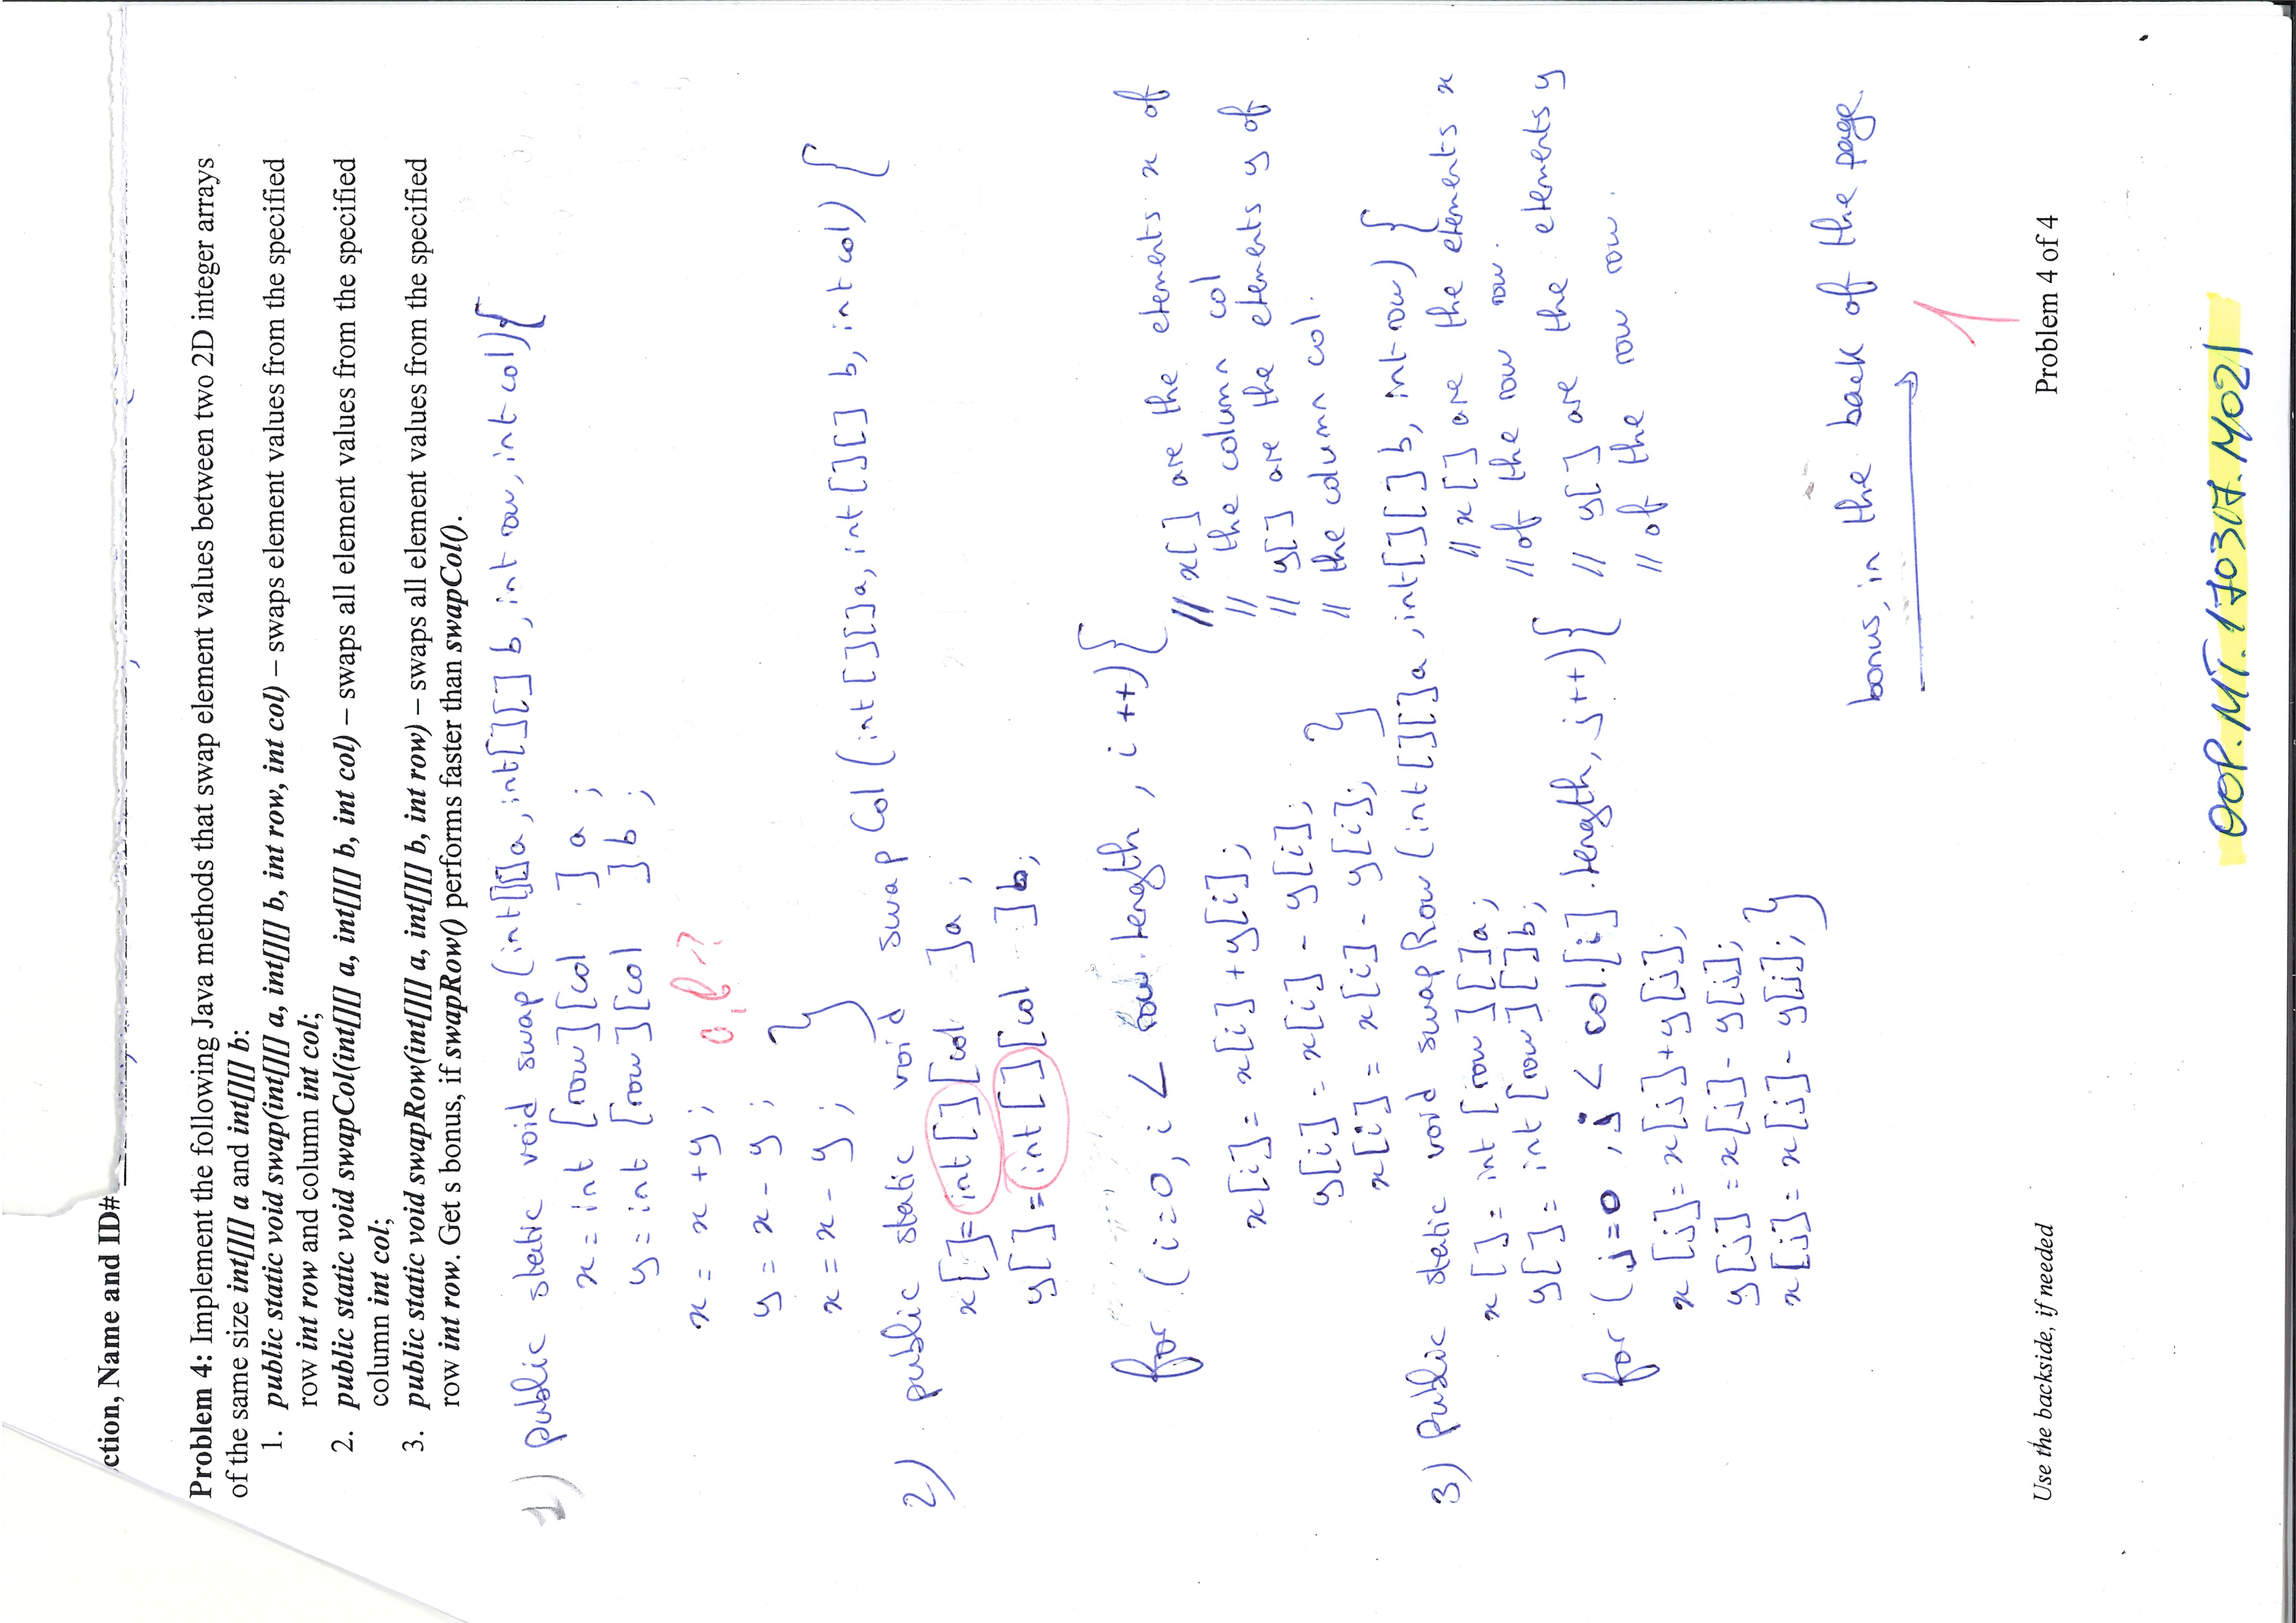 ction, Name and ID#
Problem 4: Implement the following Java methods that swap element values between two 2D integer arrays
of the same size int[][] a and int[][] b:
1. public static void swap(int[][] a, int[][] b, int row, int col) – swaps element values from the specified
row int row and column int col;
2. public static void swapCol(int[][] a, int[][] b, int col) – swaps all element values from the specified
column int col;
3. public static void swapRow(int[][] a, int[][] b, int row) – swaps all element values from the specified
row int row. Get s bonus, if swapRow() performs faster than swapCol().
1) public static void swap (int[][]a, int[][] b, int row, int col){
x = int [row][col ] a ;
y = int [row][col ] b ;
x = x + y ; a, b ?
y = x - y ;
x = x - y ; }
2) public static void swapCol (int[][]a, int[][] b, int col) {
x[]= int[][col ]a ;
y[] = int[][col ]b;
for (i=0, i < row.length, i++){
x[i] = x[i] + y[i]; // x[] are the elements x of
// the column col
y[i] = x[i] - y[i]; // y[] are the elements y of
x[i] = x[i] - y[i]; } // the column col.
3) Public static void swapRow (int[][]a, int[][]b, int row) {
x[] = int [row][]a; // x[] are the elements x
y[] = int [row][]b; // of the row row.
for (j=0, j < col.[i].length, j++){ // y[] are the elements y
x[j] = x[j]+y[j]; // of the row row.
y[j] = x[j] - y[j];
x[j] = x[j] - y[j]; }
bonus, in the back of the page.
1
Use the backside, if needed Problem 4 of 4
OOP.MT.170307.M021